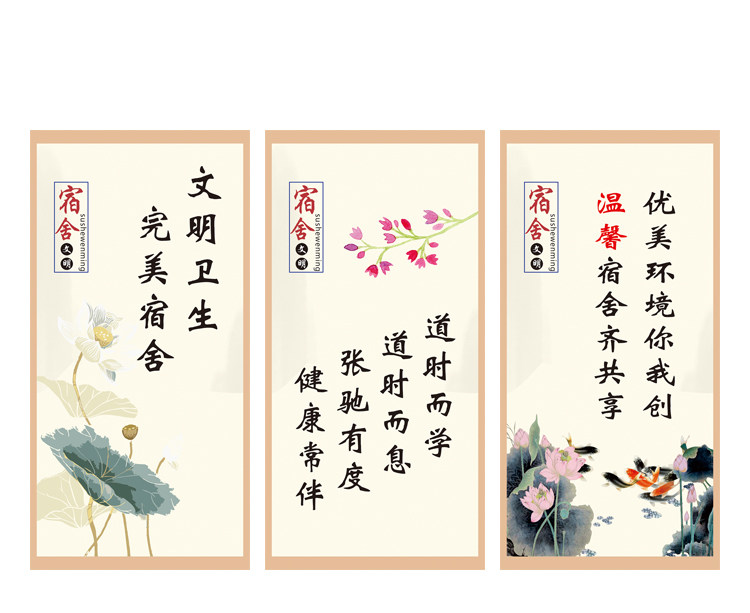 宿舍
文明
sushewenming
文明卫生
完美宿舍
宿舍
文明
sushewenming
道时而学
道时而息
张驰有度
健康常伴
宿舍
文明
sushewenming
优美环境你我创
温馨宿舍齐共享